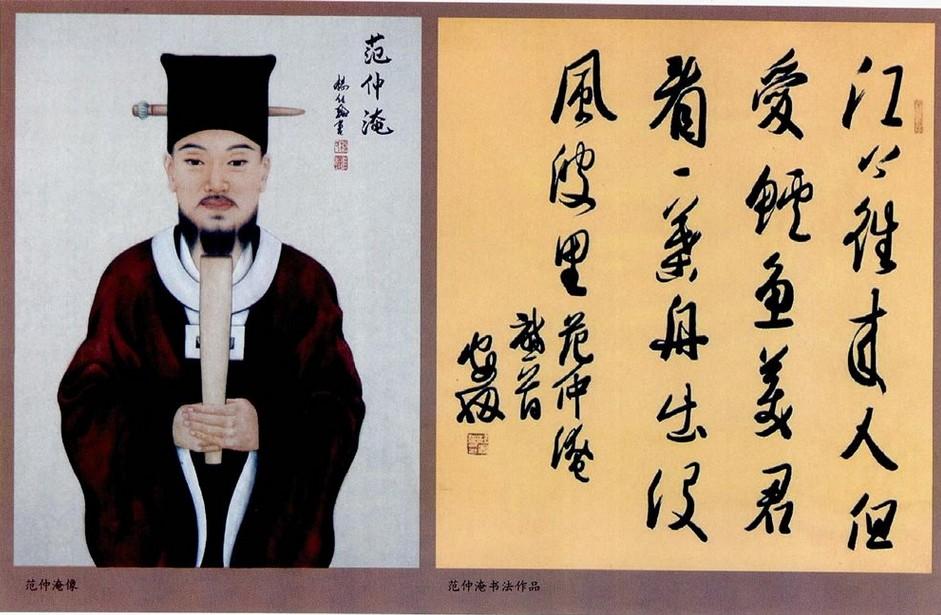 范仲淹
江上往来人但
愛鲈鱼美君
看一葉舟出没
風波里
范仲淹
范仲淹像
范仲淹书法作品